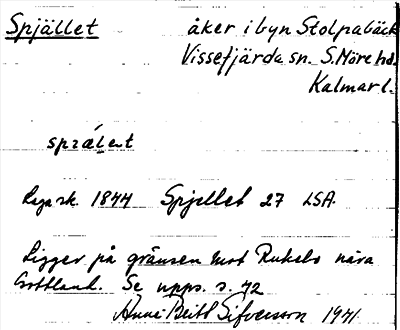 Spjället åker i byn Stolpabäck
Vissefjärda sn. S. Möre hd.
Kalmar l.
sprälet
Laga sk. 1844 Spjellet 27 LSA.
Ligger på gränsen mot Rukebo nära
Gottland. Se upps. s. 42
Anna Britt Sifverson 1941.